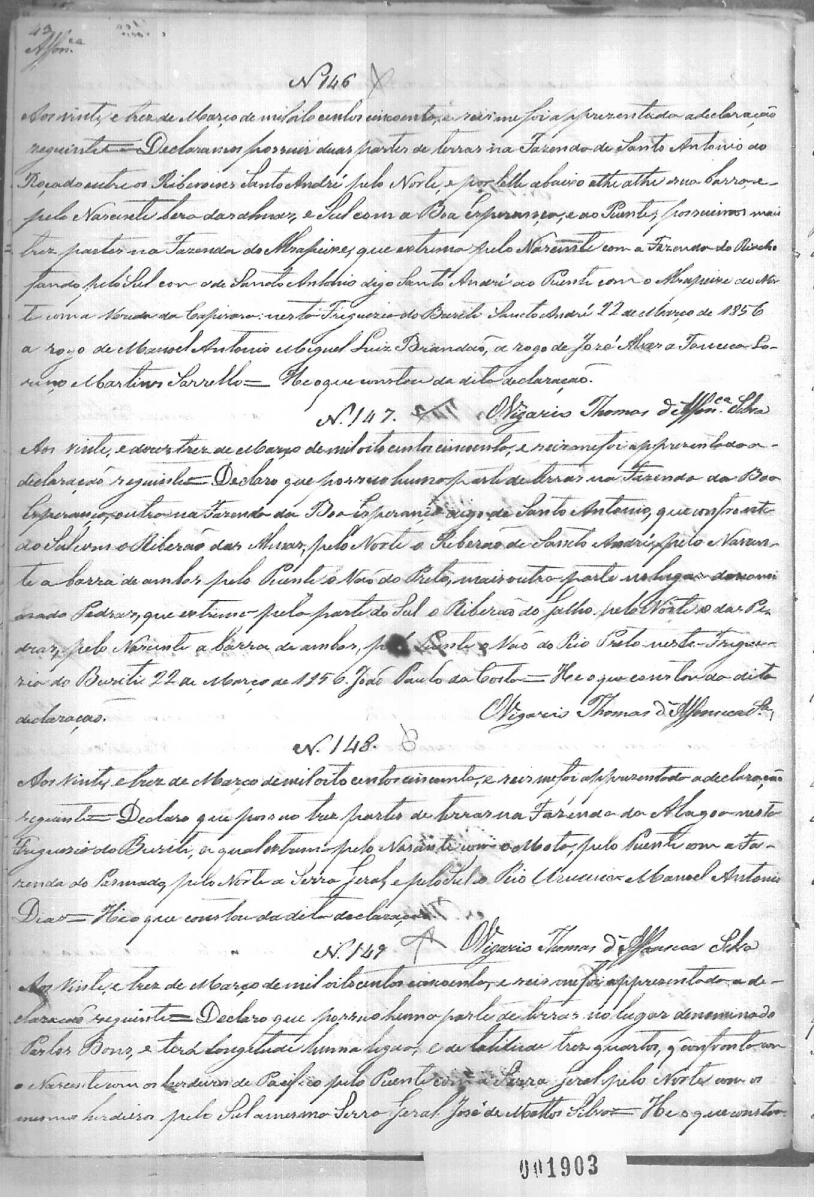 43
Affon.ca
N 146
Aos vinte, e trez de Março de mil oito centos cincoenta, e seis me foi apprezentada a declaração
seguinte = Declaramos possuir duas partes de terras na Fazenda de Santo Antonio do
Roçado entre os Ribeiroens Santo André pelo Norte, e por elle abaixo athe athe a sua barra e
pelo Nascente bera das Almas, e Sul com a Boa Esperança, e ao Puente, possuimos mais
trez partes na Fazenda do que extrema pelo Nascente com a Fazenda do Riacho
fundo, pelo Sul com o de Santo Antonio digo Santo André ao Puente com o do Nor-
te com a Vereda da Capivara: nesta Friguezia do Buriti Santo André 22 de Março de 1856
a rogo de Manoel Antonio Miguel Luiz Brandão, a rogo de José da Fonceca
Martins = He o que constou da dita declaração.
N. 147. O Vigario Thomas d' Affon.ca Silva
Aos vinte, e dous trez de Março de mil oito centos cincoenta, e seis me foi apprezentada a
declaração seguinte = Declaro que possuo huma parte de terras na Fazenda da Boa
Esperança, outra na Fazenda da Boa Esperança digo de Santo Antonio, que confronta
do Sul com o Ribeirão das Almas, pelo Norte o Ribeirão de Sancto André, pelo Nascen-
te a barra de ambos pelo Puente o Vaõ do Preto, mais outra parte no lugar denomi
nado Pedras, que extrema pela parte do Sul o Ribeirão do Galho, pelo Norte o das Pe-
dras, pelo Nascente a barra de ambos, pelo Puente o Vaõ do Rio Preto nesta Frigue-
zia do Buriti 22 de Março de 1856. João Paulo da Costa = He o que constou da dita
declaração. O Vigario Thomas d' Affonceca S.a
N. 148.
Aos vinte, e trez de Março de mil oito centos cincoenta, e seis me foi apprezentada a declaração
seguinte = Declaro que possuo trez partes de terras na Fazenda da Alagoa nesta
Friguezia do Buriti, a qual extrema pelo Nascente com o Mato, pelo Puente com a Fa-
zenda do Pasmado, pelo Norte a Serra Geral, e pelo Sul o Rio Urucuia Manoel Antonio
Dias = He o que constou da dita declaração
N. 149 O Vigario Thomas d' Affonceca Silva
Aos vinte, e trez de Março de mil oito centos cincoenta, e seis me foi apprezentada a de-
claração seguinte = Declaro que possuo huma parte de terras no lugar denominado
Pastos Bons, e terá longetude huma legua, e de latitude trez quartos, q' confronta com
o Nascente com os herdeiros de Pacifico pelo Puente com a Serra Geral pelo Norte com os
mesmos herdeiros pelo Sul a mesma Serra Geral José de Mattos Silva = He o que constou
001903